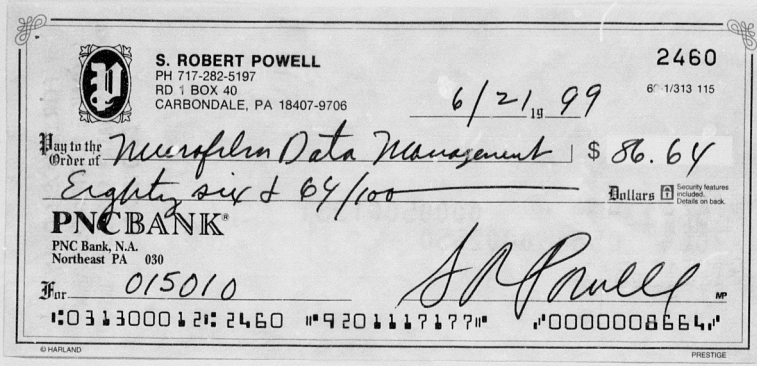 S. ROBERT POWELL
PH 717-282-5197
RD 1 BOX 40
CARBONDALE, PA 18407-9706
2460
1/313 115
6/21 19 99
Pay to the Order of Microfilm Data Management $ 86.64
Eighty six & 64/100 Dollars
Security features included. Details on back.
PNCBANK®
PNC Bank, N.A.
Northeast PA 030
For 015010
S R Powell
MP
⑆031300012⑆ 2460 ⑈9201117177⑈ ⑇0000008664⑇
© HARLAND
PRESTIGE